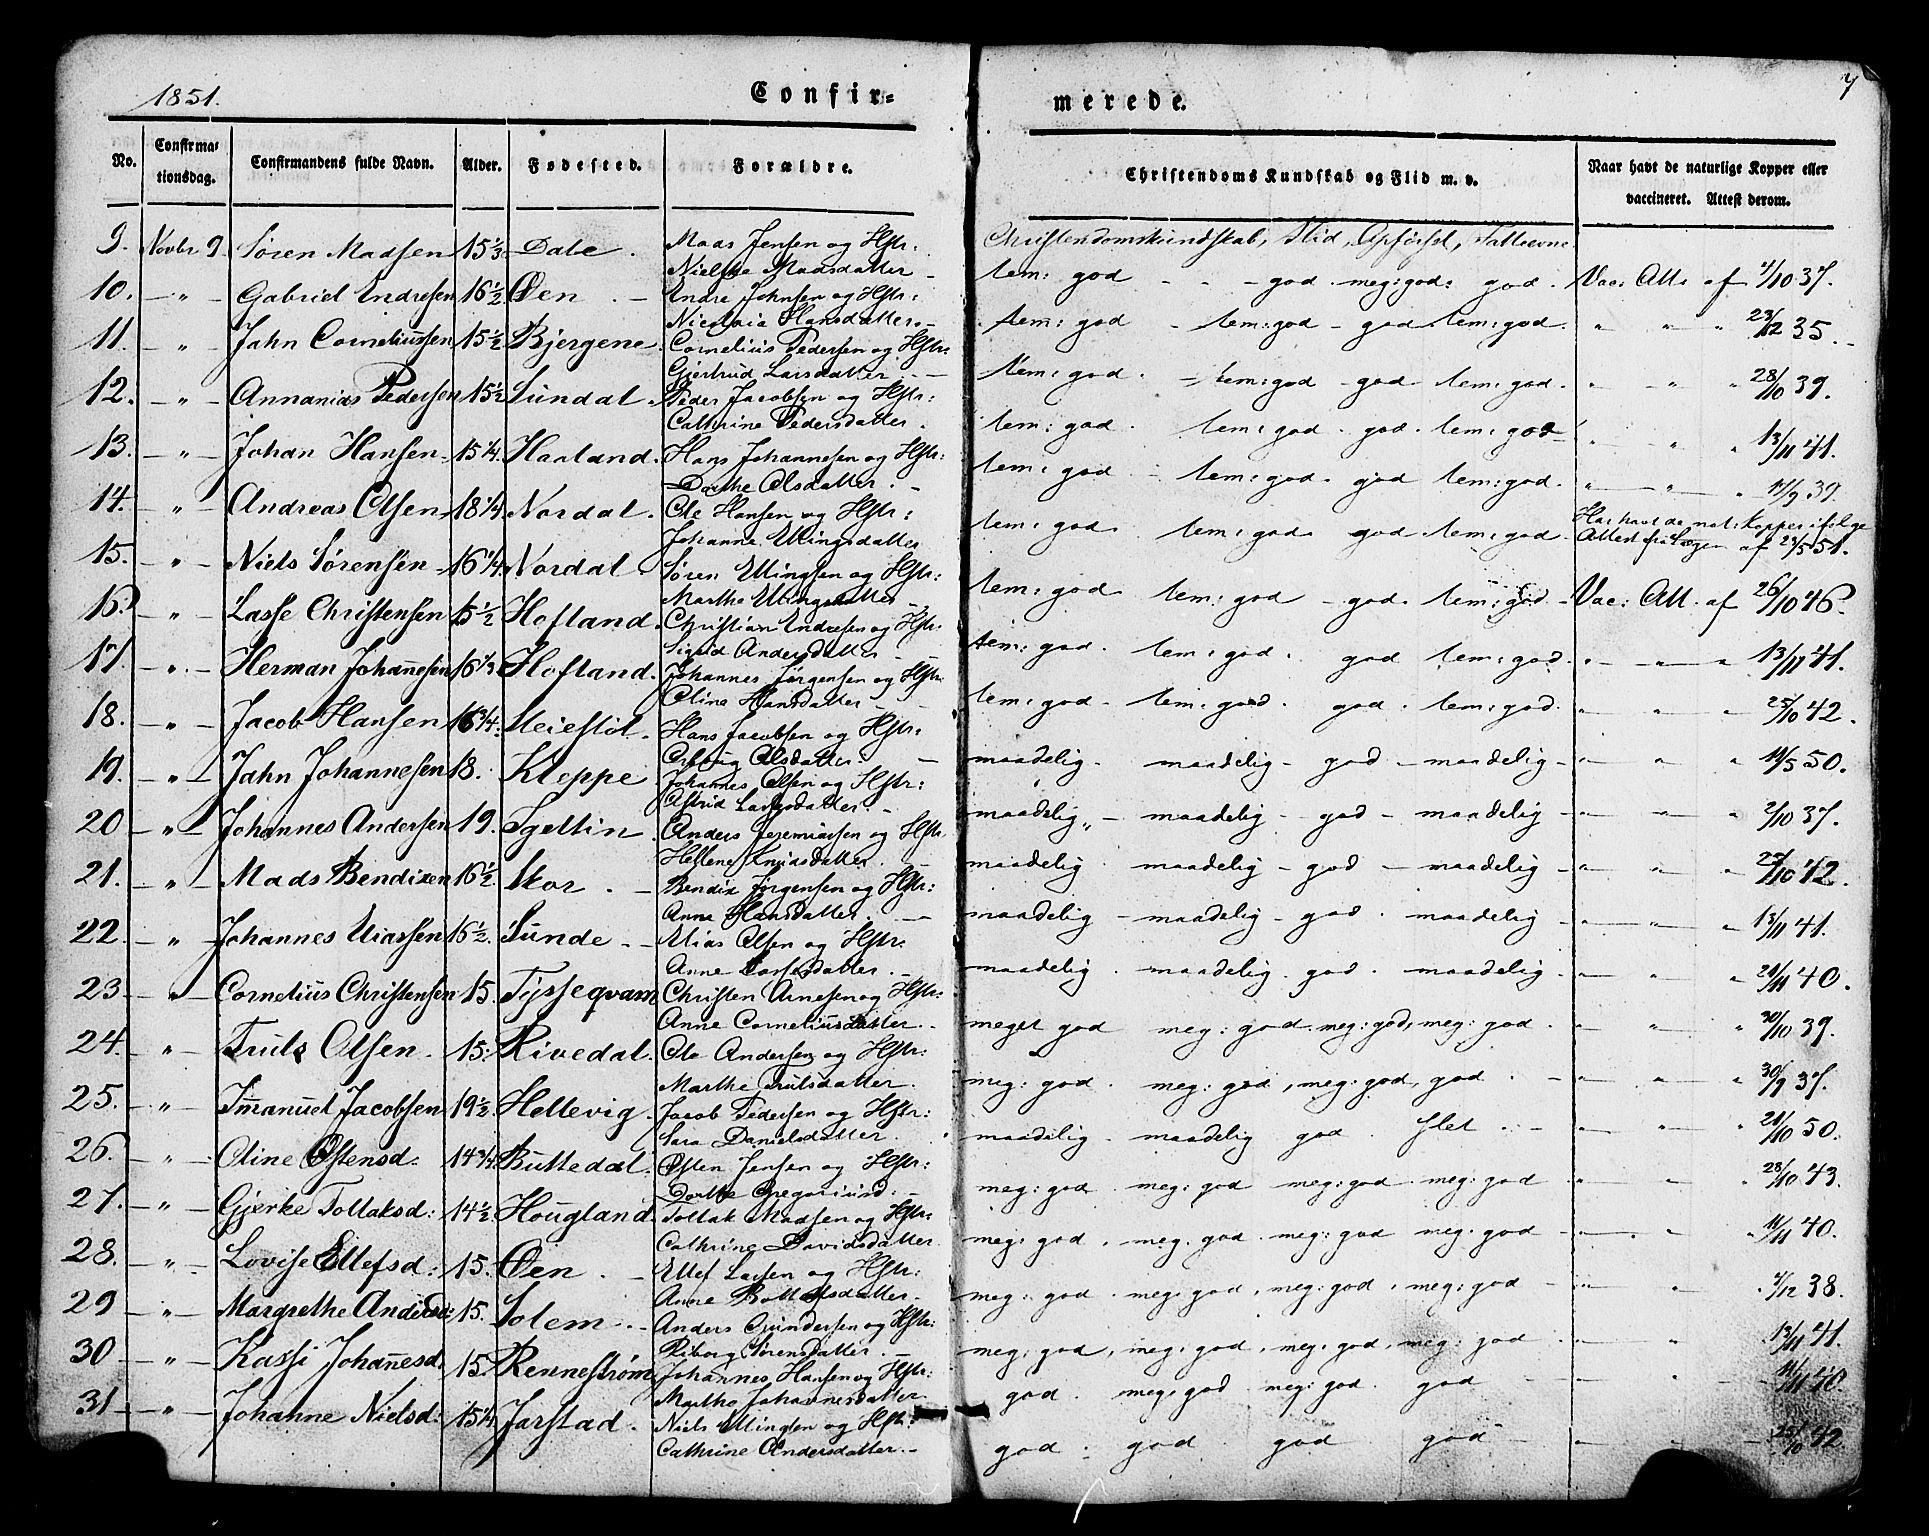 1851.
Confir-
merede.
7
No.
Confirma-
tionsdag.
Confirmandens fulde Navn.
Alder.
Fødested.
Forældre.
Christendoms Kundskab og Flid m. v.
Naar havt de naturlige Kopper eller
vaccineret. Attest derom.
Christendomskundskab, Flid, Opførsel, Fatteevne
9. Novbr 9. Søren Madsen 15 1/3 Dale. Maas Jensen og Hstr:
Nielske Maasdatter - tem: god - - - god meg: god. god. Vac: Att. af 4/10 37.
10. - " - Gabriel Endresen 16 1/2 Øen. - Endre Johnsen og Hstr:
Nicolaia Hansdatter. - tem: god - tem: god - god tem: god. " " " 23/12 35.
11. - " - Jahn Corneliussen 15 1/2 Bjergene. Cornelius Pedersen og Hstr:
Gjertrud Larsdatter. - tem: god. - tem: god - god tem: god. " " " 28/10 39.
12. - " - Annanias Pedersen 15 1/2 Sundal. Peder Jacobsen og Hstr:
Cathrine Pedersdatter. tem: god. tem: god. god. tem: god - " " " 13/11 41.
13. - " - Johan Hansen. 15 1/4. Haaland. Hans Johannesen og Hstr:
Dorthe Olsdatter. - tem: god - tem: god. god tem: god. " " " 17/9 39.
14. - " - Andreas Olsen 18 1/4. Nordal. Ole Hansen og Hstr:
Johanne Ellingsdatter tem: god. tem: god. god tem: god. Har havt de nat: Kopper ifølge
Attest fra af 24/5 51.
15. - " - Niels Sørensen 16 1/4. Nordal. Søren Ellingsen og Hstr:
Marthe Ellingsdatter. tem: god. tem: god - god. tem: god - Vac: Att. af 26/10 46.
16. " - Lasse Christensen 15 1/2 Hofland. Christian Endresen og Hstr:
Sigrid Andersdatter - tem: god. tem: god. god tem: god. " " " 13/11 41.
17. - " - Herman Johannesen 16 1/3 Hofland. Johannes Jørgensen og Hstr:
Oline Hansdatter - tem: god - tem: god. god. tem: god. " " " 25/10 42.
18. - " - Jacob Hansen 16 3/4. Steiestøl. Hans Jacobsen og Hstr:
Olsdatter. - maadelig. maadelig - god - maadelig - " " " 11/5 50.
19. - " - Jahn Johannesen 18. Kleppe Johannes Olsen og Hstr:
Astrid Larsdatter. - maadelig - maadelig - god - maadelig - " " " 2/10 37.
20 - " - Johannes Andersen 19. Anders Jeremiassen og Hstr:
Hellene Knudsdatter. maadelig. maadelig - god - maadelig - " " " 25/10 42.
21. - " - Mads Bendixen 16 1/2 Skor. - Bendix Jørgensen og Hstr:
Anne Hansdatter. - maadelig - maadelig - god. maadelig - " " " 13/11 41.
22. - " - Johannes Eliassen 16 1/2. Sunde. - Elias Olsen og Hstr:
Anne Lassesdatter. - maadelig. maadelig. god. maadelig - " " " 21/11 40.
23 - " - Cornelius Christensen 15. Tysseqvam Christen Arnesen og Hstr:
Anne Corneliusdatter. meget god meg: god. meg: god, meg: god. " " " 30/10 39.
24. - " - Truls Olsen. 15: Rivedal. Ole Andersen og Hstr:
Marthe Trulsdatter. meg: god. meg: god, meg: god, god. - " " " 30/9 37.
25. - " - Imanuel Jacobsen 19 1/2. Hellevig. Jacob Pedersen og Hstr:
Sara Danielsdatter. maadelig. maadelig god slet. - " " " 21/10 50.
26. - " - Oline Østensd: 14 3/4 Buttedal. Østen Jensen og Hstr:
Dorthe Gregoriusd: meg: god. meg: god meg: god. meg: god " " " 28/10 43.
27. - " - Gjerke Tollaksd: 14 1/2. Hougland. Tollak Madsen og Hstr:
Cathrine Davidsdatter meg: god. meg. god. meg: god meg: god " " " 11/11 40.
28. - " - Lovise Ellefsd: 15. Øen. - Ellef Lassen og Hstr:
Anne meg: god. meg: god, meg: god, meg: god - " " " 4/12 38.
29 - " - Margrethe Andersd: 15. Solem. - Anders Gundersen og Hstr:
Riborg Sørensdatter. - meg: god, meg: god, meg: god, meg: god - " " " 13/11 41.
30 - " - Kassi Johanesd. 15. Rennestrøm Johannes Hansen og Hstr:
Marthe Johannesdatter god. meg: god meg: god. god - " " " 11/11 40.
31 - " - Johanne Nielsd: 15 1/4. Jarstad. Niels Ellingsen og Hstr:
Cathrine Andersdatter. - god. god god god - " " " 25/10 42.